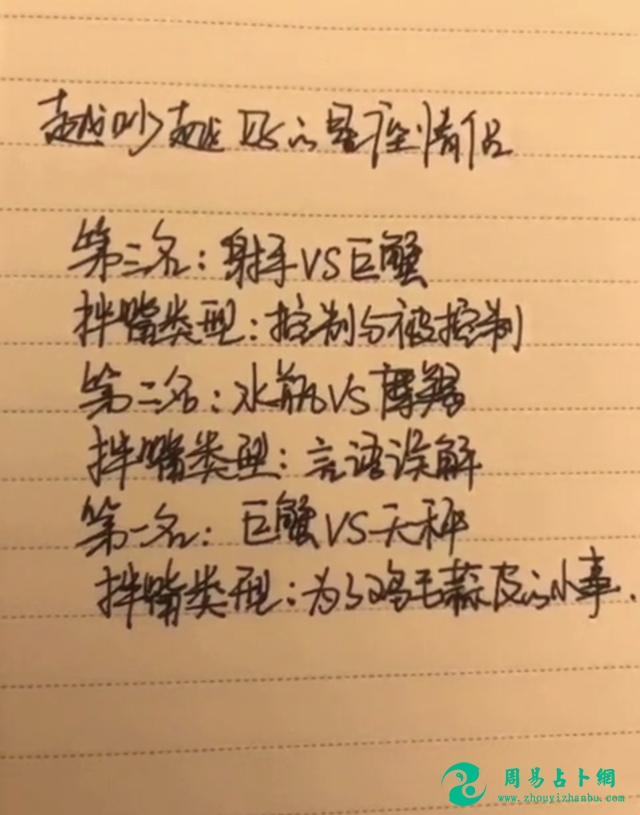 越吵越黏的星座情侣
第三名：射手VS巨蟹
拌嘴类型：控制与被控制
第二名：水瓶VS摩羯
拌嘴类型：言语误解
第一名：巨蟹VS天秤
拌嘴类型：为了鸡毛蒜皮的小事.
周易占卜網
www.zhouyizhanbu.com